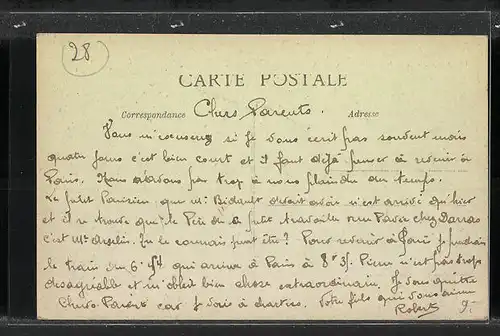 28
CARTE POSTALE
Correspondance Chers Parents. Adresse
Vous m'excuserez si je vous écrit pas souvent mais
quatre jours c'est bien court et il faut déjà penser à revenir à
Paris. Nous n'avons pas trop à nous plaindre du temps.
Le petit Parisien que Mr Bidault devait avoir n'est arrivé qu'hier
et il se trouve que le Père du petit travaille rue Pavée chez
c'est Mr tu le connais peut être? Pour revenir à Paris je prendrais
le train du 6 qui arrive à Paris à 8 Pierre n'est pas trop
désagréable et m'obéit bien chose extraordinaire. Je vous quitte
Chers Parents car je vais à Chartres. Votre fils qui vous aime
Robert